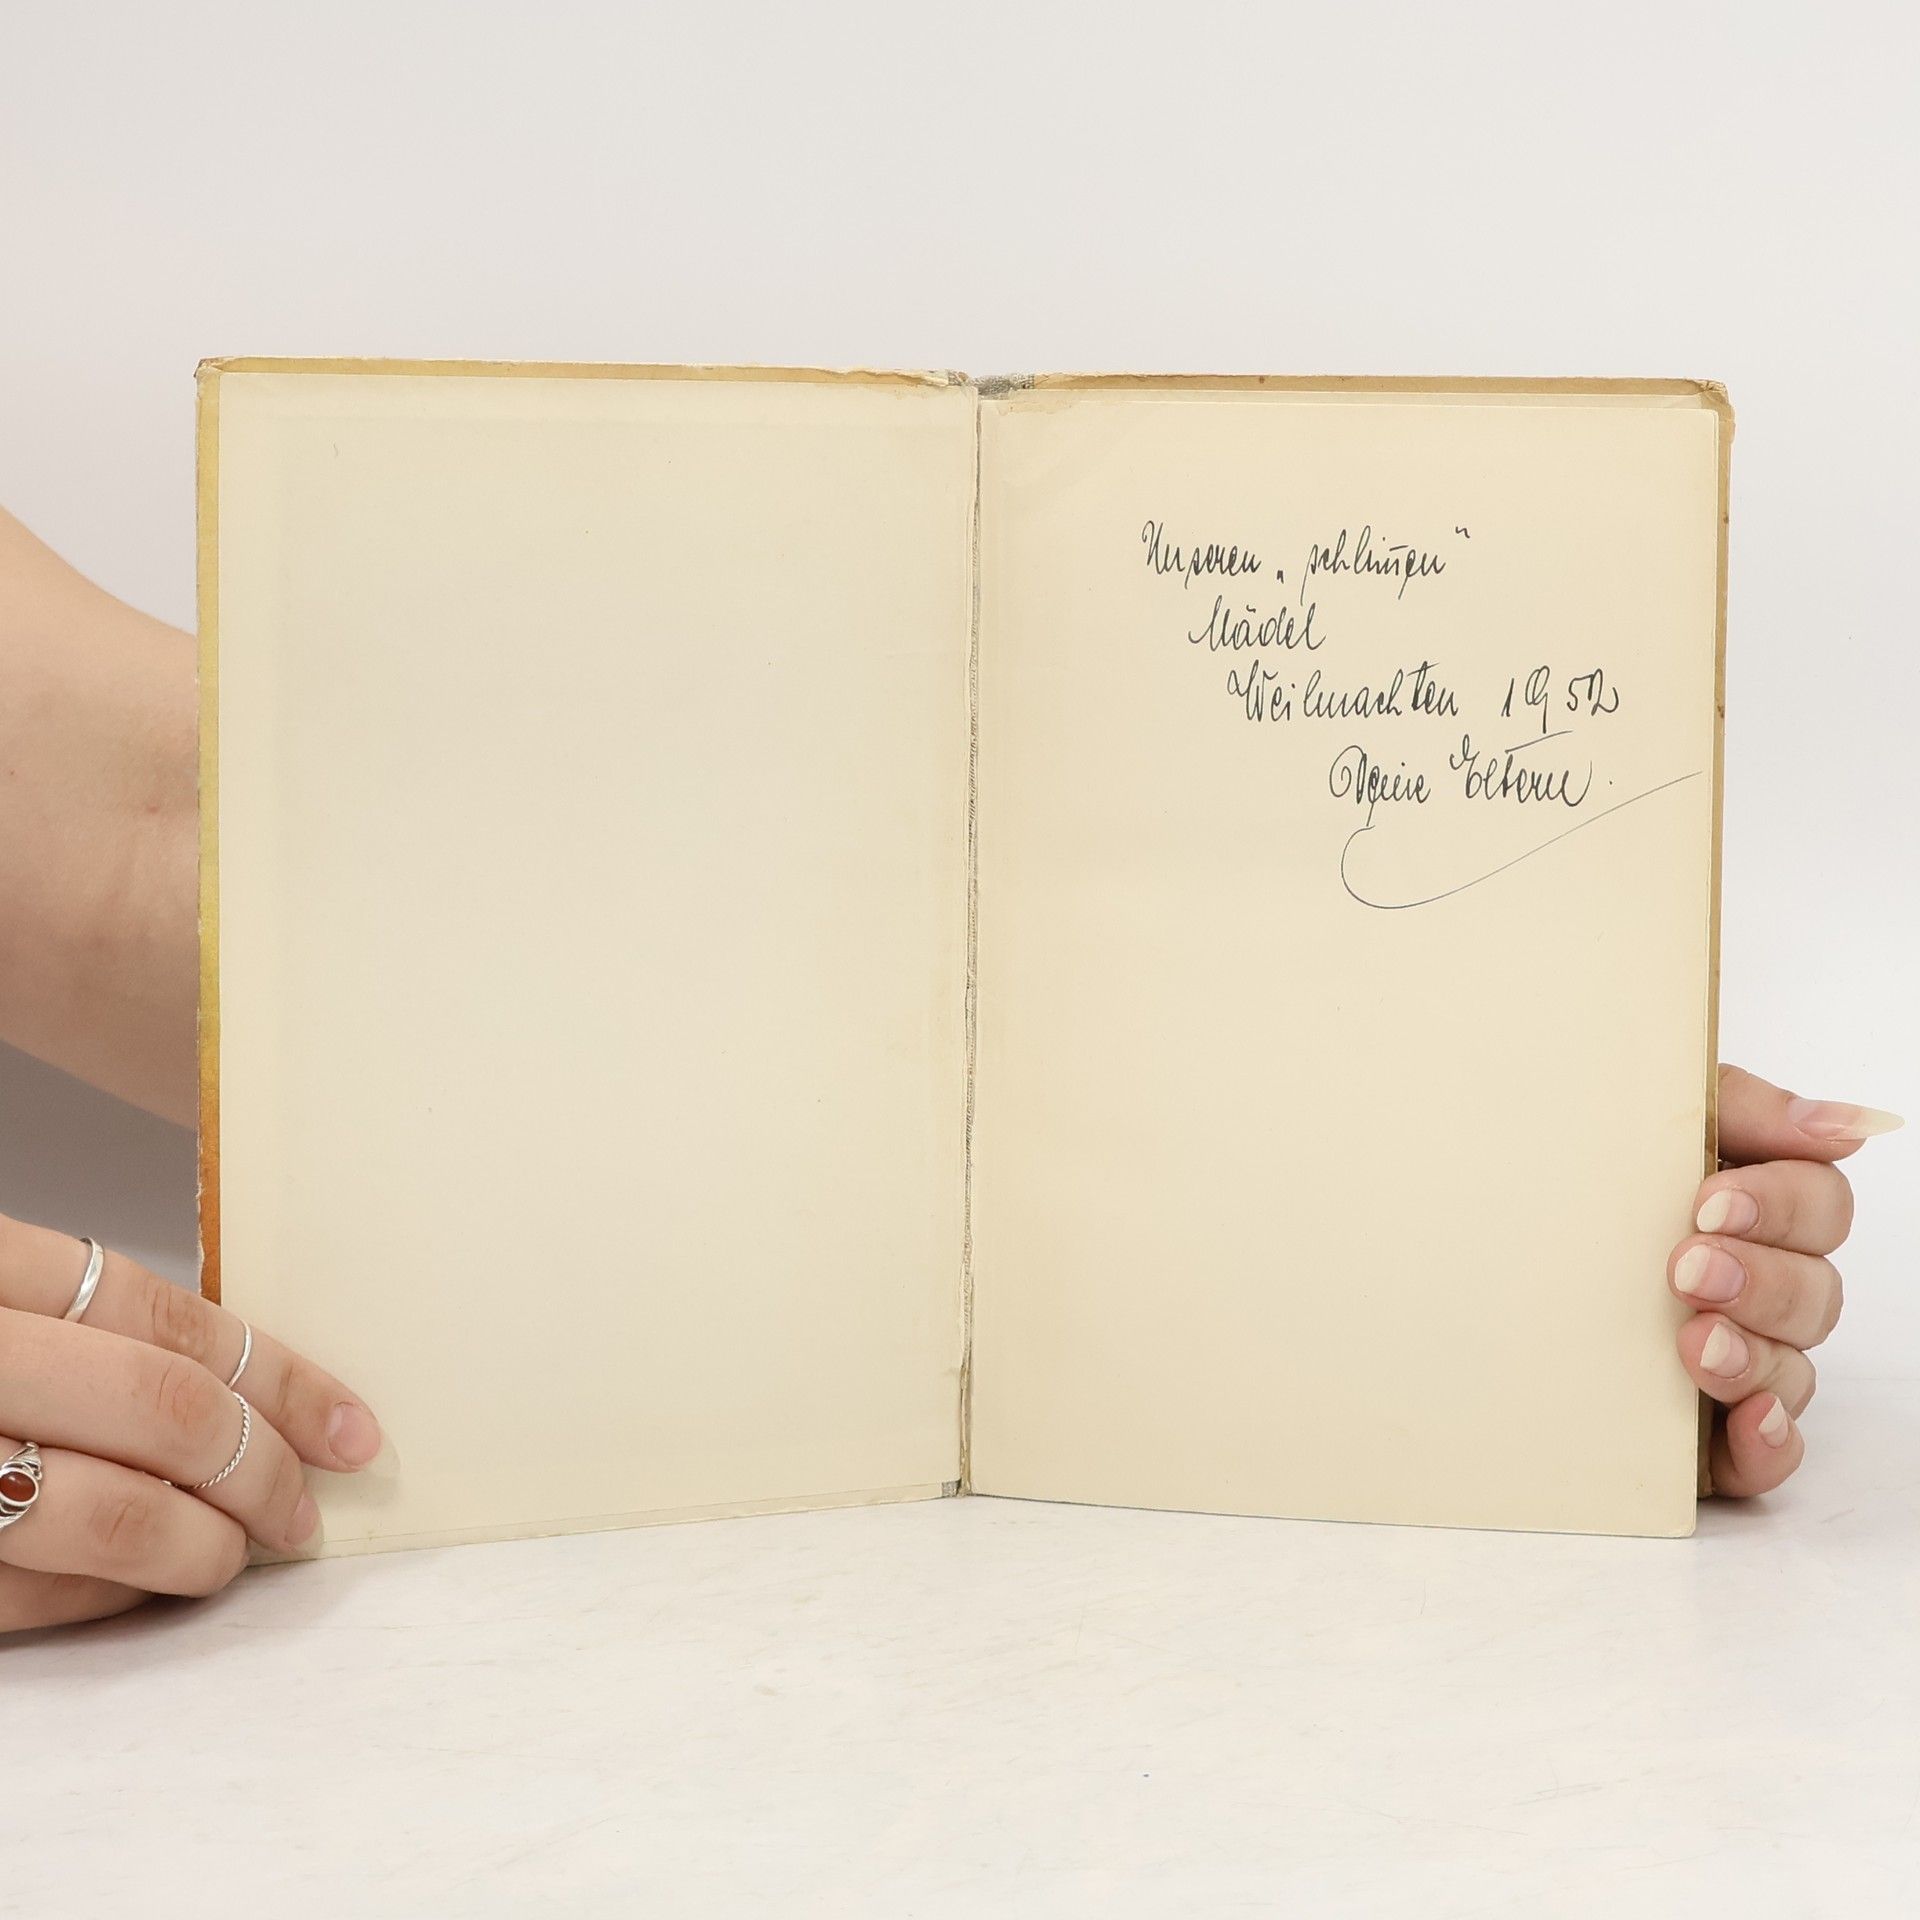 Unseren „schlim̄en“
Mädel
Weihnachten 1952
Deine Eltern.